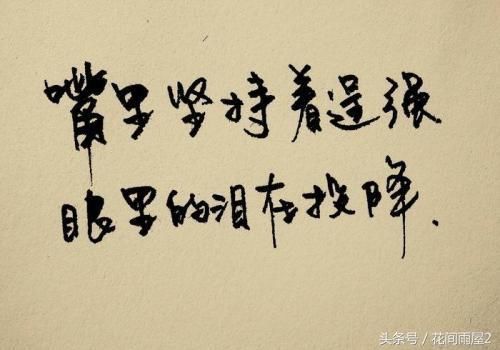 嘴里坚持着逞强
眼里的泪在投降.
头条号 / 花间雨屋2